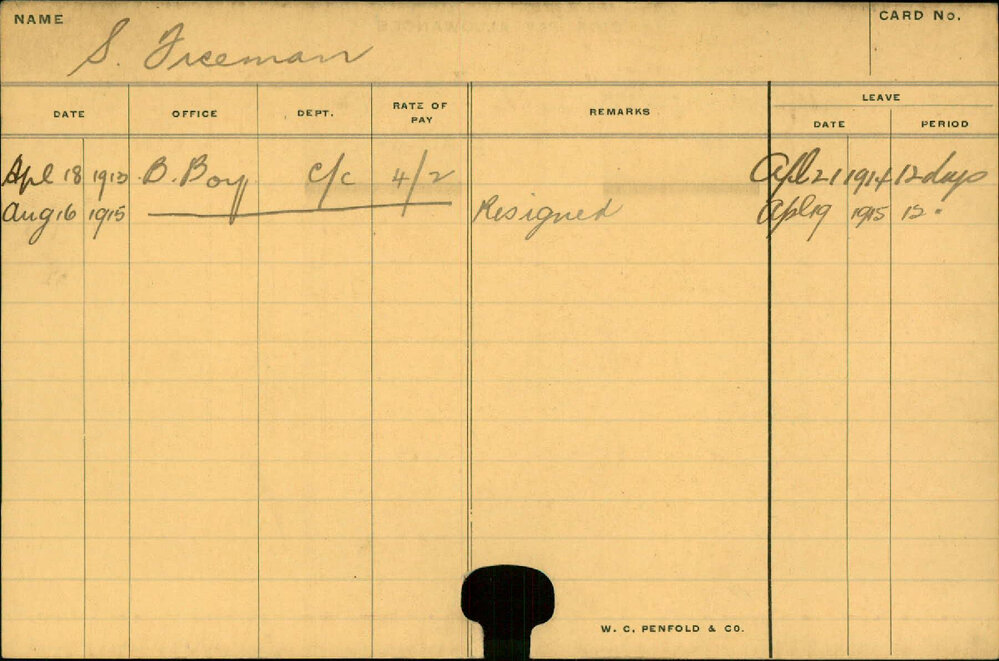 NAME
S. Freeman
CARD No.
DATE OFFICE DEPT. RATE OF PAY REMARKS LEAVE
DATE PERIOD
Apl 18 1913 B. Boy c/c 4/2 Apl 21 1914 12 days
Aug 16 1915 Resigned Apl 19 1915 12 .
W. C. PENFOLD & CO.